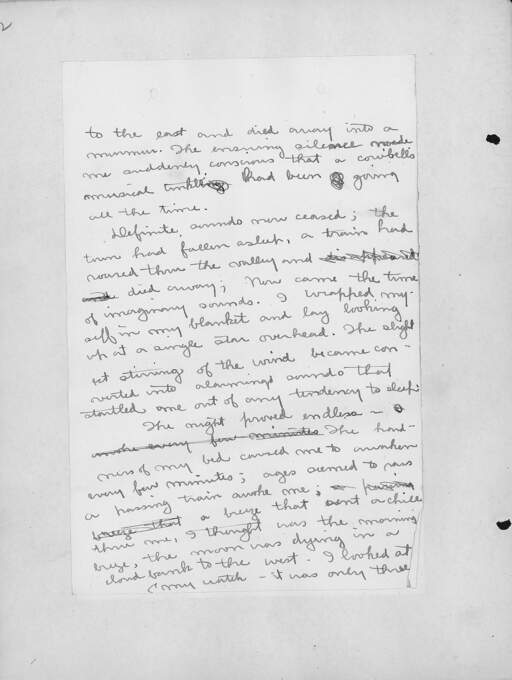 2
to the east and died away into a
murmur. The ensuing silence made
me suddenly conscious that a cowbell's
musical tinkling had been going
all the time.
Definite sounds now ceased; the
town had fallen asleep, a train had
roared thru the valley and disappeared
and died away; Now came the time
of imaginary sounds. I wrapped my-
self in my blanket and lay looking
up at a single star overhead. The slight
est stirring of the wind became con-
verted into alarming sounds that
startled me out of any tendency to sleep.
The night proved endless –
awoke every few minutes The hard-
ness of my bed caused me to awaken
every few minutes; ages seemed to pass
a passing train awoke me; a passing
breeze that a breeze that sent a chill
thru me, I thought was the morning
breeze, the moon was dying in a
cloud bank to the west. I looked at
my watch – it was only three